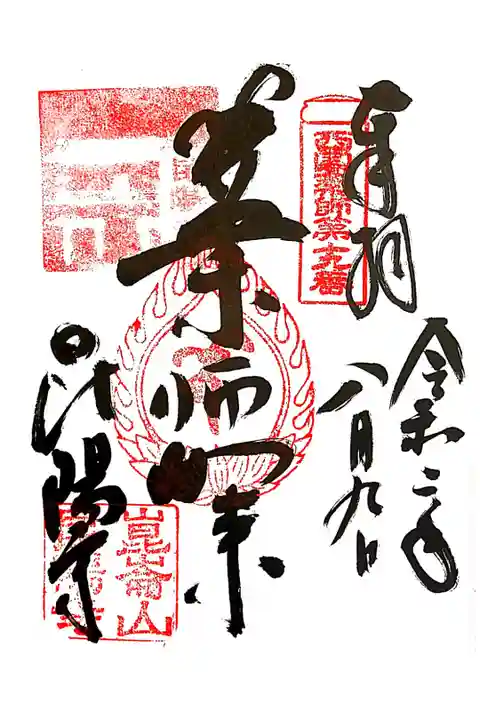 奉拝
西國薬師第十九番
令和二年
八月九日
薬師如来
昆陽寺
崑崙山
昆陽寺